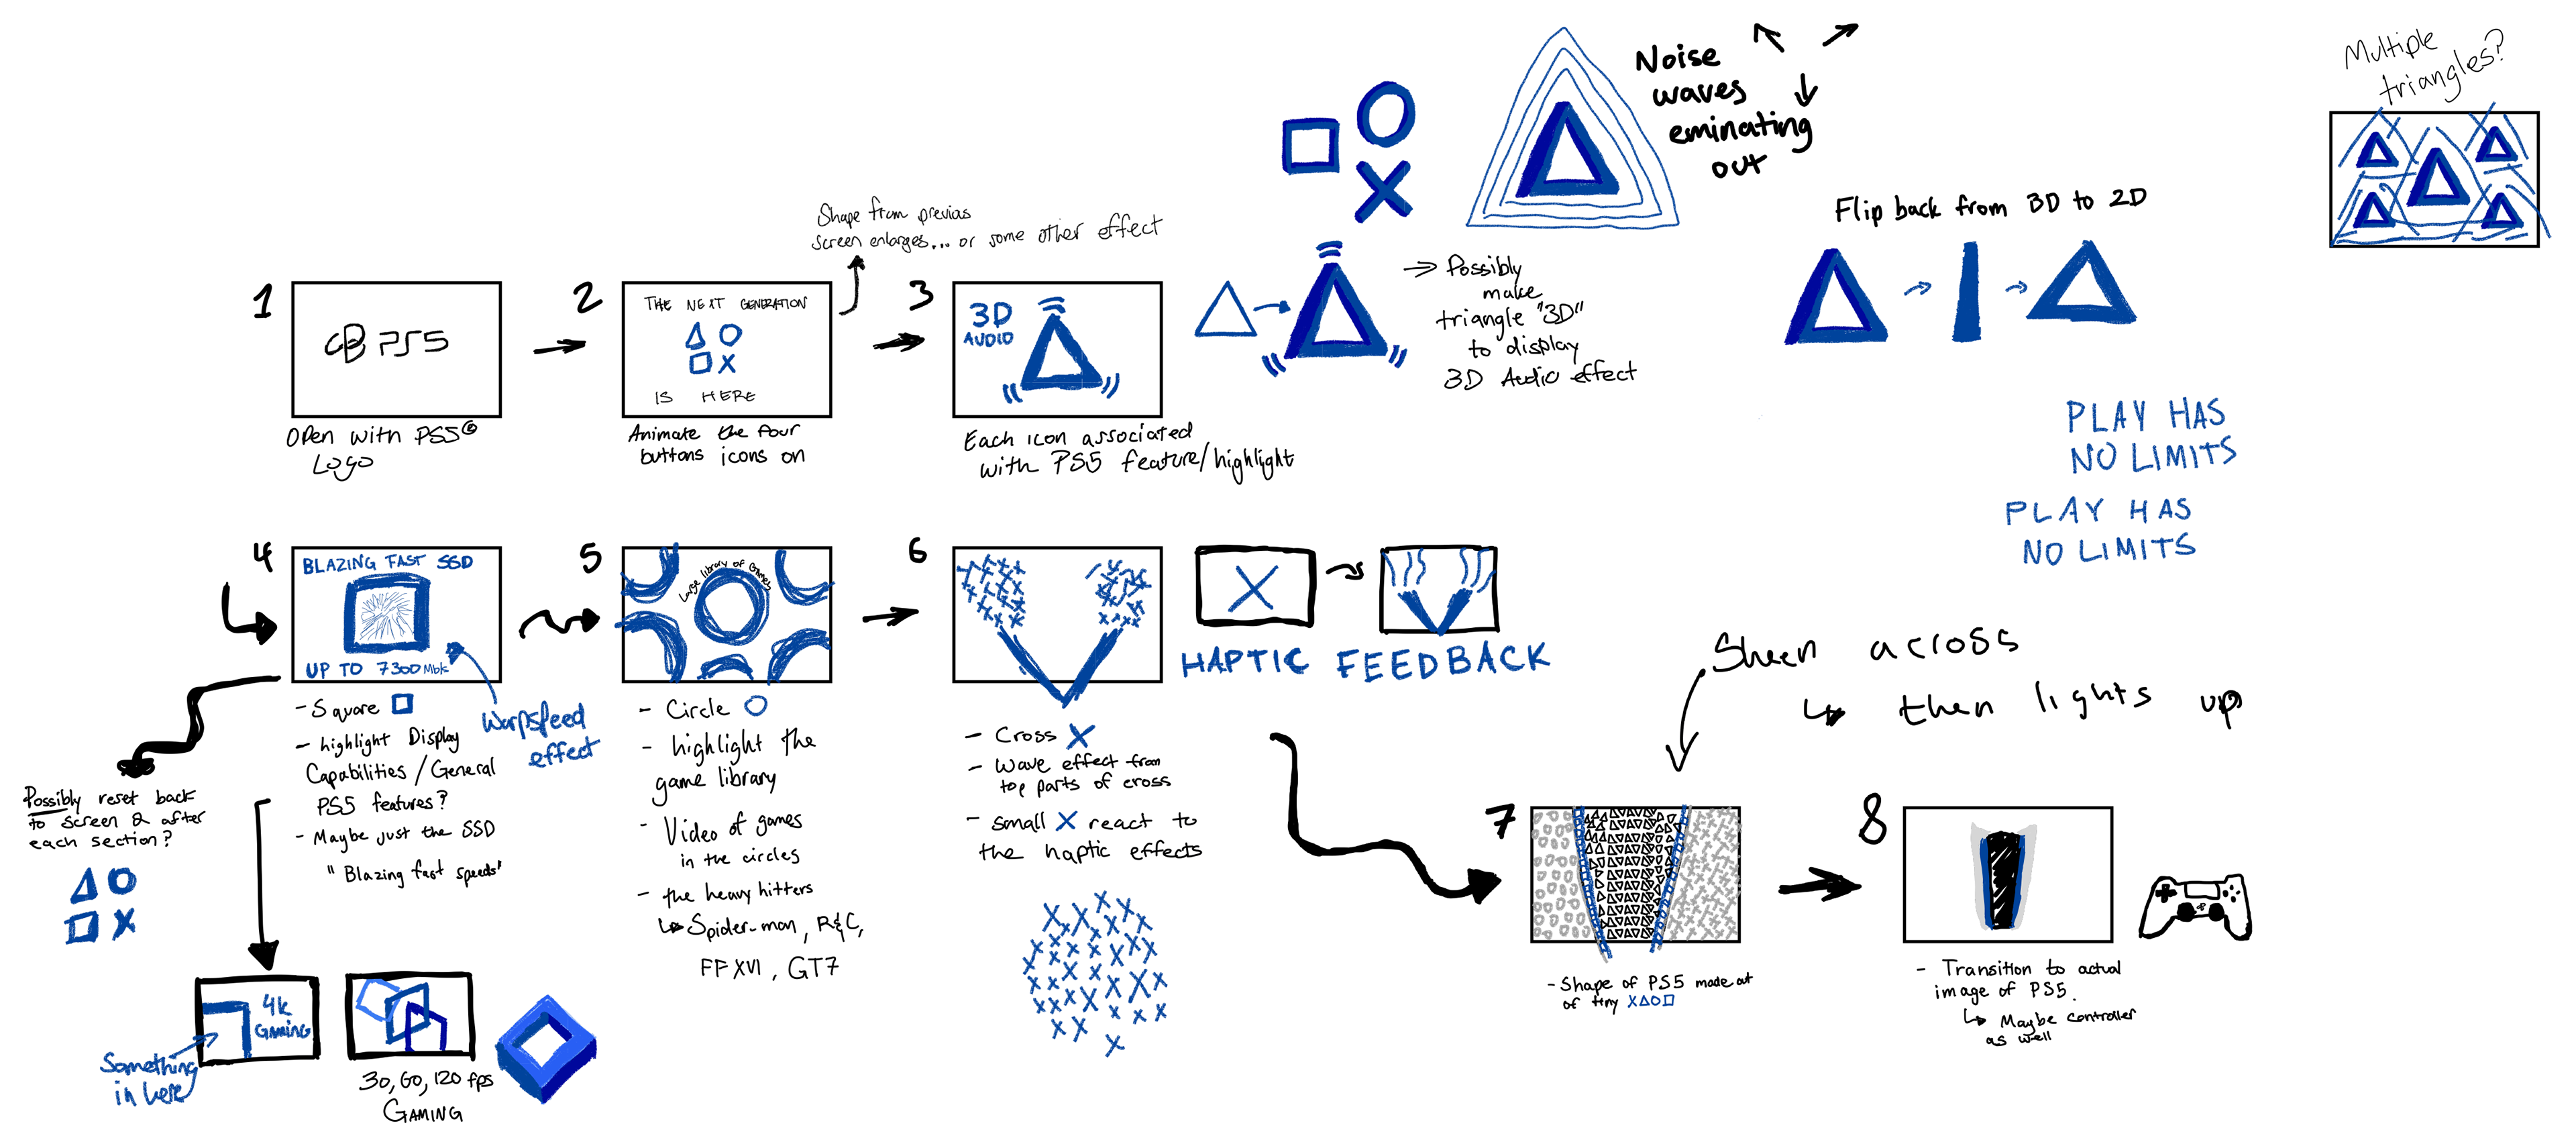 Multiple
triangles?
Noise
waves
eminating
out
Shape from previas
screen enlarges... or some other effect
Flip back from 3D to 2D
1
PS5
Open with PS5©
Logo
2
THE NEXT GENERATION
IS HERE
Animate the four
buttons icons on
3
3D
AUDIO
Each icon associated
with PS5 feature/highlight
→ Possibly
make
triangle "3D"
to display
3D Audio effect
PLAY HAS
NO LIMITS
PLAY HAS
NO LIMITS
4
BLAZING FAST SSD
UP TO 7300
Warpspeed
effect
- Square
- highlight Display
Capabilities / General
PS5 features?
- Maybe just the SSD
" Blazing fast speeds"
Possibly reset back
to screen 2 after
each section?
4k
GAMING
Something
in here
30, 60, 120 fps
GAMING
5
Large library of Games
- Circle
- highlight the
game library
- Video of games
in the circles
- the heavy hitters
↳ Spider-man, R&C,
FF XVI, GT7
6
HAPTIC FEEDBACK
- Cross X
- Wave effect from
top parts of cross
- small X react to
the haptic effects
Sheen across
↳ then lights up
7
- Shape of PS5 made out
of tiny X△O□
8
- Transition to actual
image of PS5.
↳ Maybe controller
as well